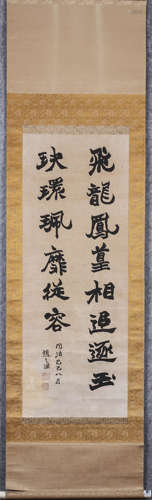 飛龍鳳皇相追逐玉
玦環珮靡從容
同治己巳八月
趙之謙